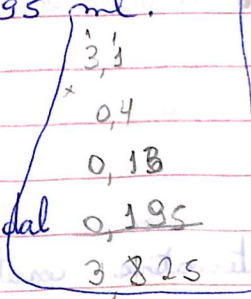 95 ml.
3,1
0,4
0,13
dal 0,195
3,825